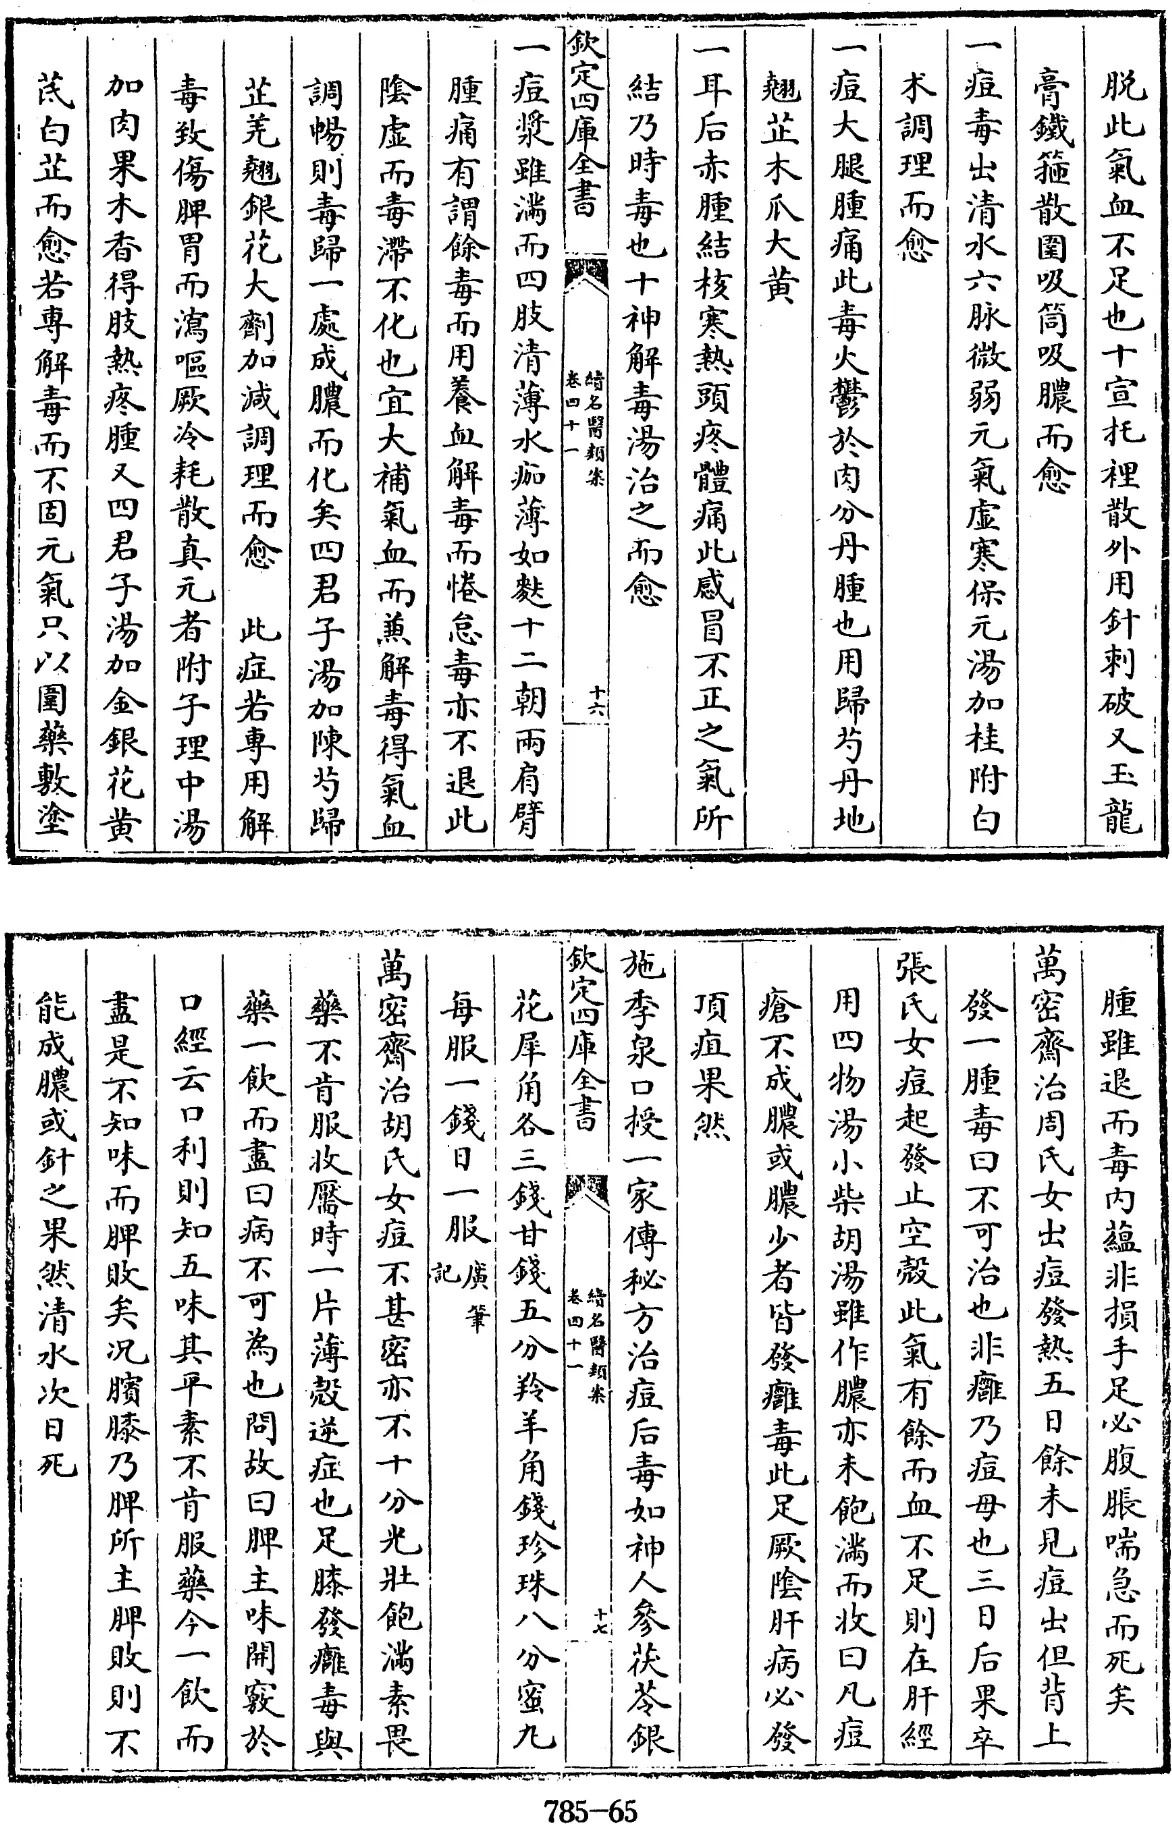 脱此氣血不足也十宣托裡散外用針刺破又玉龍
膏鐵箍散圍吸筒吸膿而愈
一痘毒出清水六脉微弱元氣虛寒保元湯加桂附白
术調理而愈
一痘大腿腫痛此毒火鬱於肉分丹腫也用歸芍丹地
翹芷木瓜大黄
一耳后赤腫結核寒熱頭疼體痛此感冒不正之氣所
結乃時毒也十神解毒湯治之而愈
欽定四庫全書
續名醫類案
卷四十一
十六
一痘漿雖滿而四肢清薄水疱薄如麩十二朝兩肩臂
腫痛有謂餘毒而用養血解毒而惓怠毒亦不退此
陰虛而毒滯不化也宜大補氣血而兼解毒得氣血
調暢則毒歸一處成膿而化矣四君子湯加陳芍歸
芷羌翹銀花大劑加減調理而愈 此症若專用解
毒致傷脾胃而瀉嘔厥冷耗散真元者附子理中湯
加肉果木香得肢熱疼腫又四君子湯加金銀花黄
芪白芷而愈若専解毒而不固元氣只以圍藥敷塗
腫雖退而毒内蘊非損手足必腹脹喘急而死矣
萬密齋治周氏女出痘發熱五日餘未見痘出但背上
發一腫毒曰不可治也非癰乃痘母也三日后果卒
張氏女痘起發止空殼此氣有餘而血不足則在肝經
用四物湯小柴胡湯雖作膿亦未飽滿而收曰凡痘
瘡不成膿或膿少者皆發癰毒此足厥陰肝病必發
頂疽果然
施季泉口授一家傳秘方治痘后毒如神人參茯苓銀
欽定四庫全書
續名醫類案
卷四十一
十七
花犀角各三錢甘錢五分羚羊角錢珍珠八分蜜丸
每服一錢日一服廣筆
記
萬密齋治胡氏女痘不甚密亦不十分光壯飽滿素畏
藥不肯服收靨時一片薄殼逆症也足膝發癰毒與
藥一飲而盡曰病不可為也問故曰脾主味開竅於
口經云口利則知五味其平素不肯服藥今一飲而
盡是不知味而脾敗矣况臏膝乃脾所主脾敗則不
能成膿或針之果然清水次日死
785-65